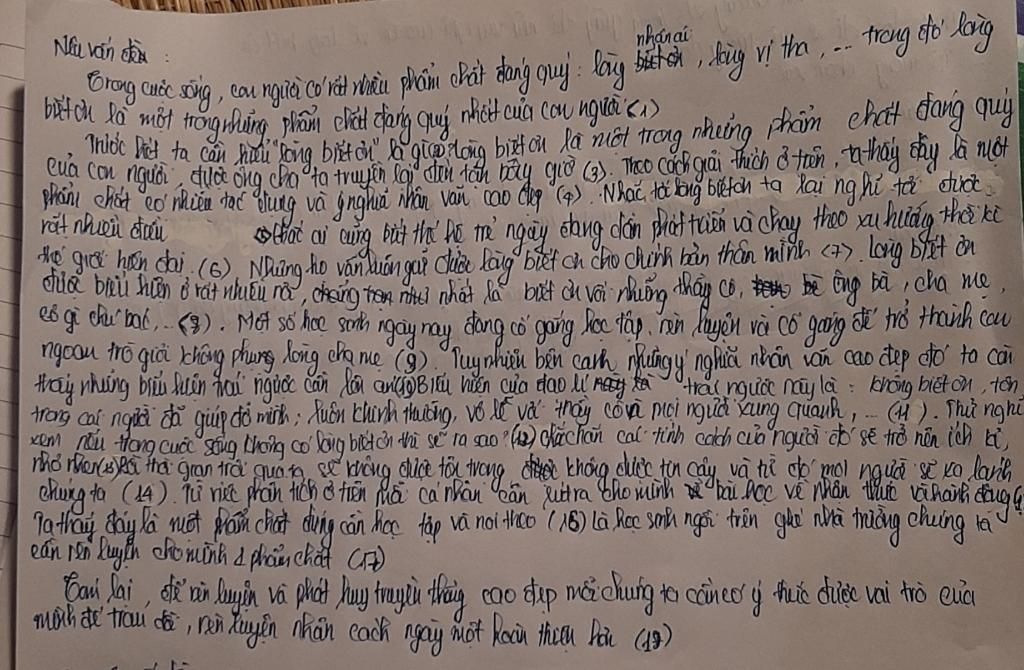 Nêu vấn đề :
nhân ái
Trong cuộc sống, con người có rất nhiều phẩm chất đáng quý: lòng biết ơn, lòng vị tha, ... trong đó lòng
biết ơn là một trong những phẩm chất đáng quý nhất của con người (1)
Trước hết ta cần hiểu "lòng biết ơn" là gì (2) lòng biết ơn là một trong những phẩm chất đáng quý
của con người, được ông cha ta truyền lại đến tận bây giờ (3). Theo cách giải thích ở trên, ta thấy đây là một
phẩm chất có nhiều tác dụng và ý nghĩa nhân văn cao đẹp (4). Nhắc tới lòng biết ơn ta lại nghĩ tới được
rất nhiều điều chắc ai cũng biết thế hệ trẻ ngày đang dần phát triển và chạy theo xu hướng thời kì
thế giới hiện đại. (6) Nhưng họ vẫn luôn giữ được lòng biết ơn cho chính bản thân mình (7). Lòng biết ơn
được biểu hiện ở rất nhiều nơi, nhất là biết ơn với những thầy cô, ông bà, cha mẹ,
cô gì chú bác, ... (8). Một số học sinh ngày nay đang cố gắng học tập, rèn luyện và cố gắng để trở thành con
ngoan trò giỏi không phụng lòng cha mẹ (9) Tuy nhiên bên cạnh những ý nghĩa nhân văn cao đẹp đó ta còn
thấy những biểu hiện trái ngược cần lên án (10) Biểu hiện của đạo lí trái ngược này là: không biết ơn, tôn
trọng cái người đã giúp đỡ mình; luôn khinh thường, vô lễ với thầy cô và mọi người xung quanh, ... (11). Thử nghĩ
xem nếu trong cuộc sống không có lòng biết ơn thì sẽ ra sao? (12) chắc chắn các tính cách của người đó sẽ trở nên ích kỉ,
nhỏ nhen (13) thời gian trôi qua ta sẽ không được tôn trọng không được tin cậy và từ đó mọi người sẽ xa lánh
chúng ta (14). Từ việc phân tích ở trên mỗi cá nhân cần rút ra cho mình bài học về nhận thức và hành động
Ta thấy đây là một phẩm chất đúng cần học tập và noi theo (16) là học sinh ngồi trên ghế nhà trường chúng ta
cần rèn luyện cho mình 1 phẩm chất (17)
Tóm lại, để rèn luyện và phát huy truyền thống cao đẹp mỗi chúng ta cần có ý thức được vai trò của
mình để trau dồi, rèn luyện nhân cách ngày một hoàn thiện hơn (18)